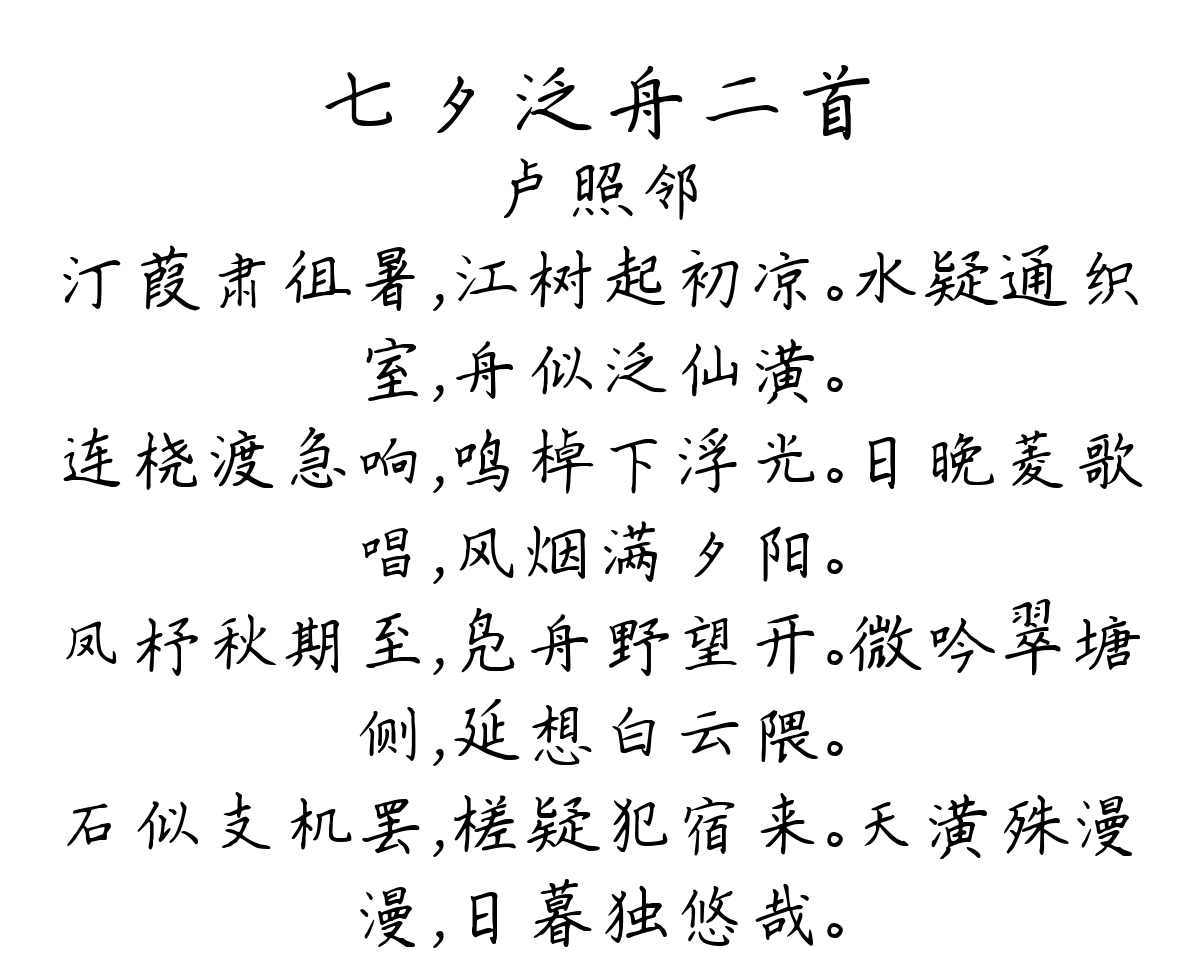 七夕泛舟二首
卢照邻
汀葭肃徂暑,江树起初凉。水疑通织
室,舟似泛仙潢。
连桡渡急响,鸣棹下浮光。日晚菱歌
唱,风烟满夕阳。
凤杼秋期至,凫舟野望开。微吟翠塘
侧,延想白云隈。
石似支机罢,槎疑犯宿来。天潢殊漫
漫,日暮独悠哉。